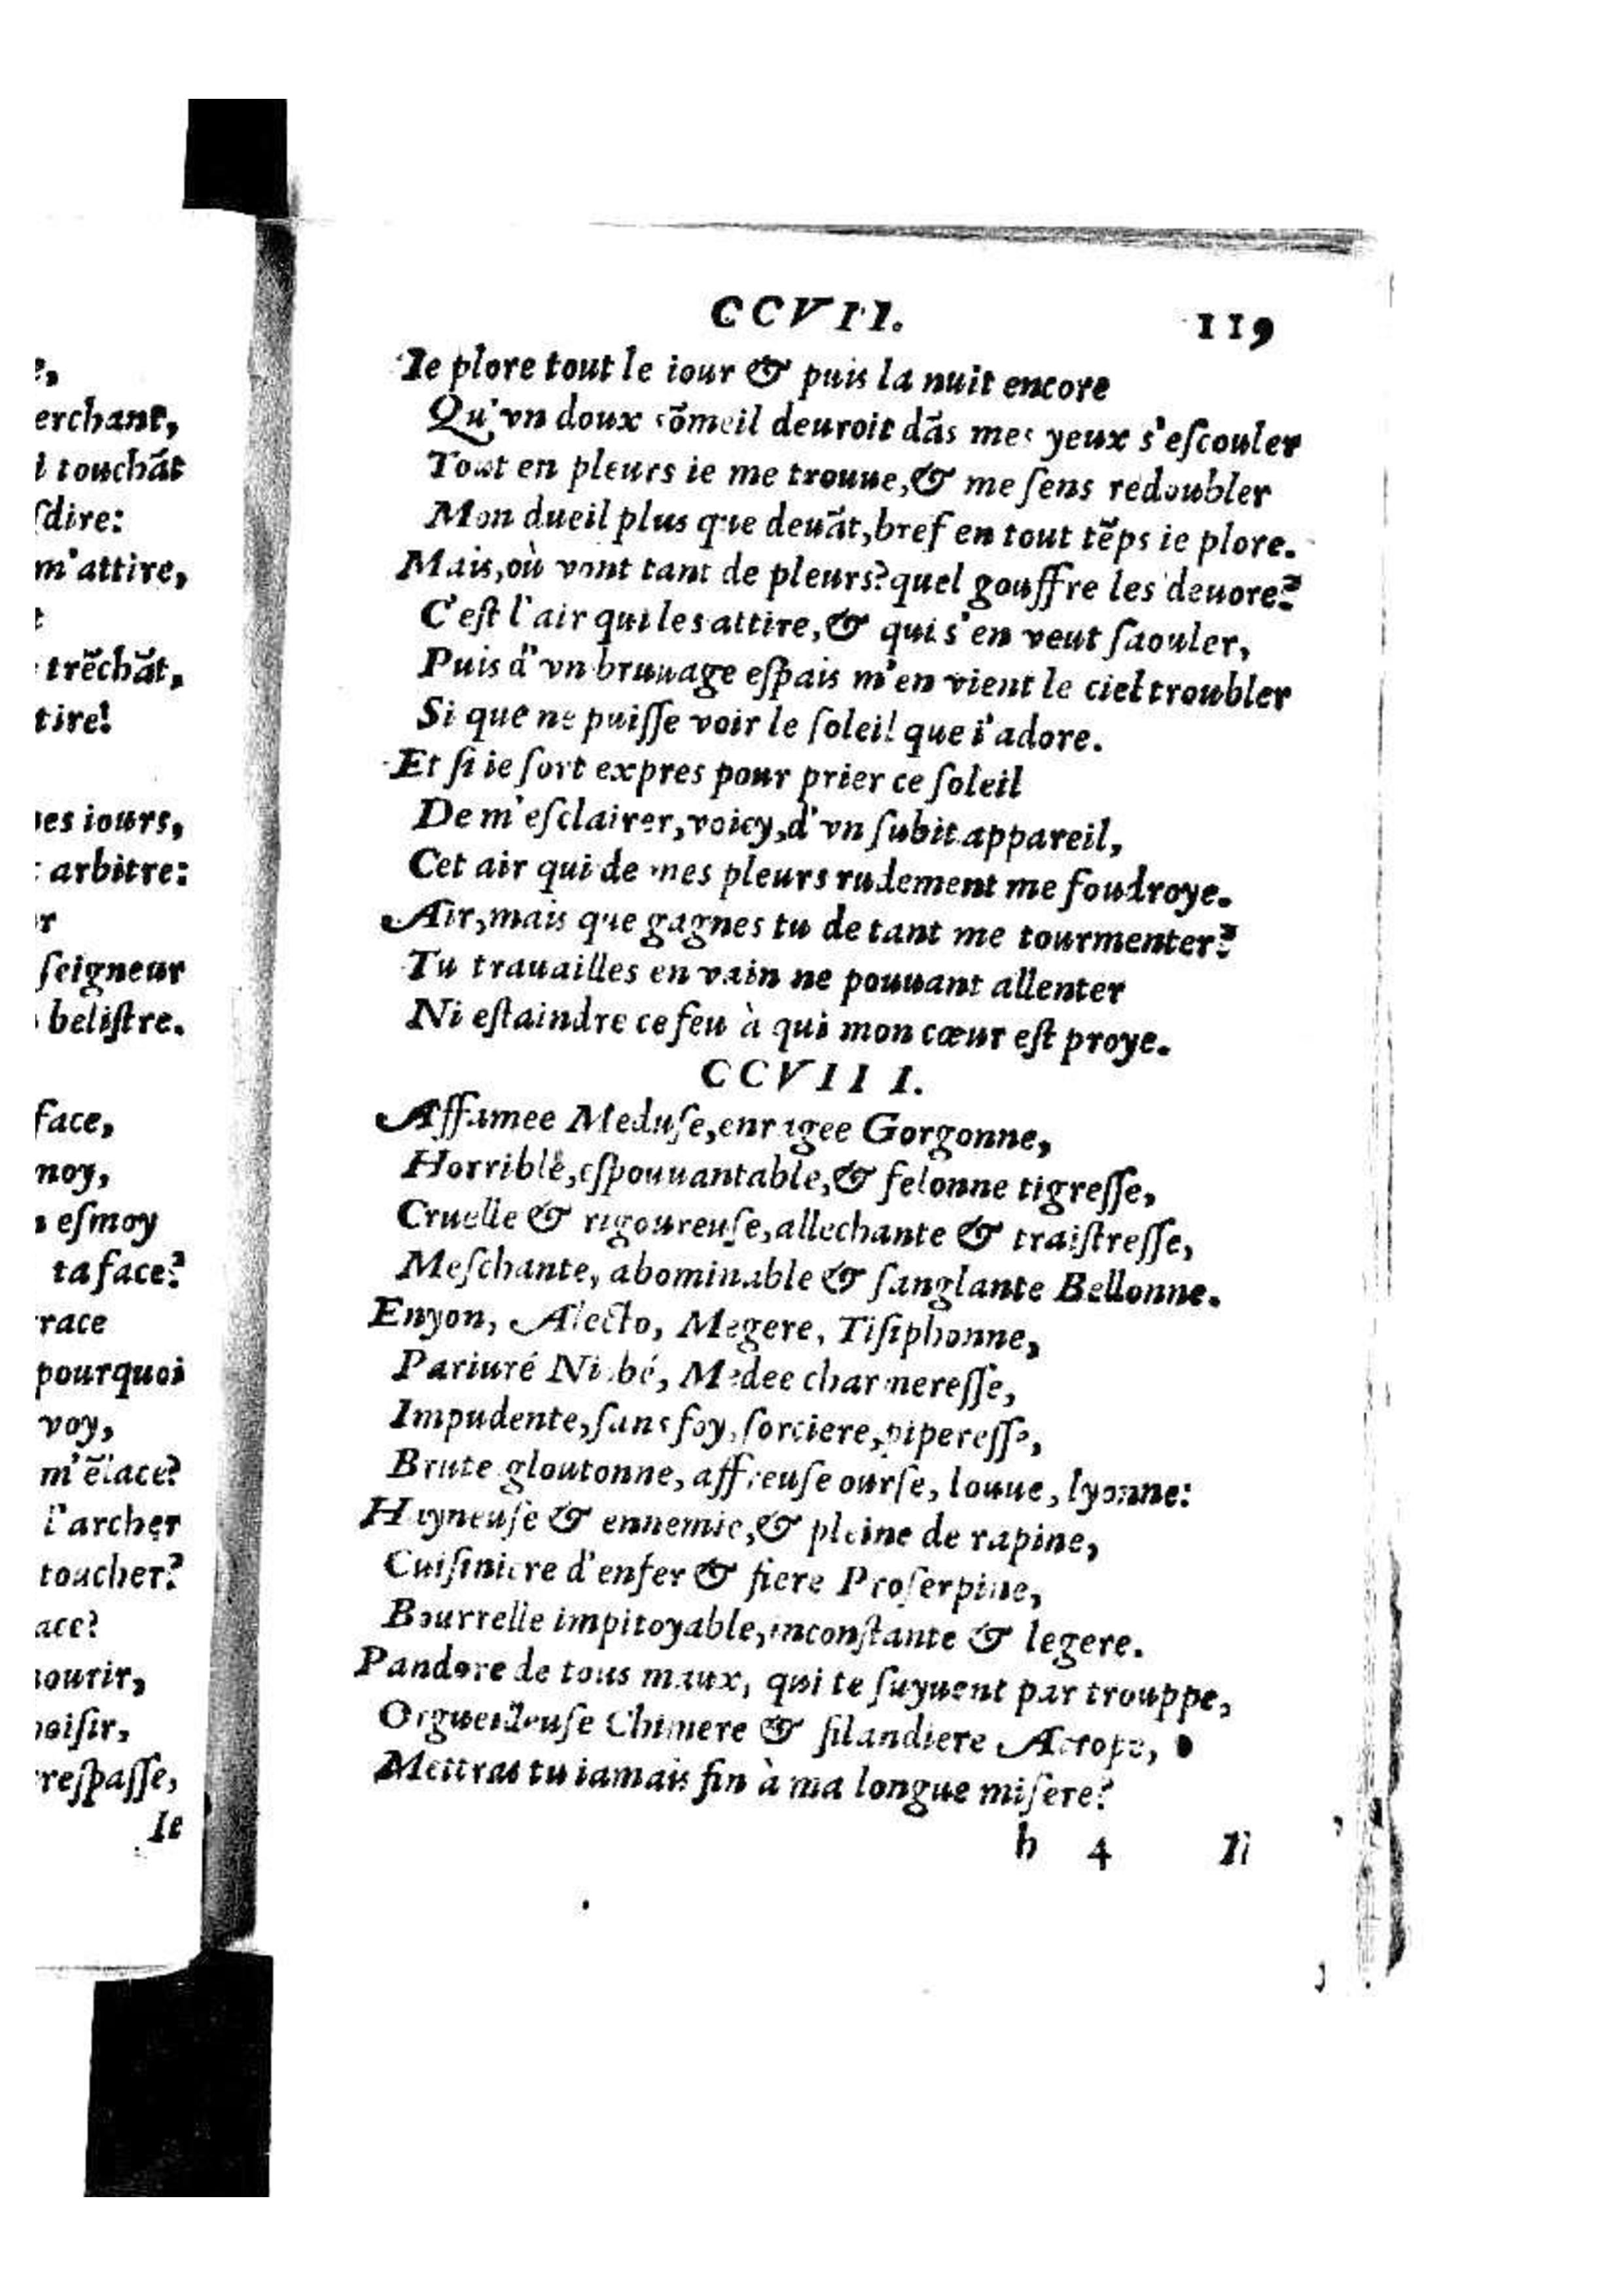 e,
erchant,
touchãt
ſdire:
m'attire,
trẽchãt,
tire!
es iours,
arbitre:
r
ſeigneur
beliſtre.
face,
moy,
eſmoy
ta face?
race
pourquoi
voy,
m'ẽlace?
l'archer
toucher?
ace?
mourir,
oiſir,
reſpaſſe,
Ie
CCVII.
119
Ie plore tout le iour & puis la nuit encore
Qu'vn doux sõmeil deuroit dãs mes yeux s'eſcouler
Tout en pleurs ie me trouue, & me ſens redoubler
Mon dueil plus que deuãt, bref en tout tẽps ie plore.
Mais, où vont tant de pleurs? quel gouffre les deuore?
C'eſt l'air qui les attire, & qui s'en veut ſaouler,
Puis d'vn bruuage eſpais m'en vient le ciel troubler
Si que ne puiſſe voir le ſoleil que i'adore.
Et ſi ie ſort expres pour prier ce ſoleil
De m'eſclairer, voicy, d'vn ſubit appareil,
Cet air qui de mes pleurs rudement me foudroye.
Air, mais que gagnes tu de tant me tourmenter?
Tu trauailles en vain ne pouuant allenter
Ni eſtaindre ce feu à qui mon cœur eſt proye.
CCVIII.
Affamee Meduſe, enragee Gorgonne,
Horrible, eſpouuantable, & felonne tigreſſe,
Cruelle & rigoureuſe, allechante & traiſtreſſe,
Meſchante, abominable & ſanglante Bellonne.
Enyon, Alecto, Megere, Tiſiphonne,
Pariuré Niobé, Medee charmereſſe,
Impudente, ſans foy, ſorciere, pipereſſe,
Brute gloutonne, affreuſe ourſe, louue, lyonne:
Hayneuſe & ennemie, & pleine de rapine,
Cuiſiniere d'enfer & fiere Proſerpine,
Bourrelle impitoyable, inconſtante & legere.
Pandore de tous maux, qui te ſuyuent par trouppe,
Orgueilleuſe Chimere & filandiere Atrope,
Mettras tu iamais fin à ma longue miſere?
h 4